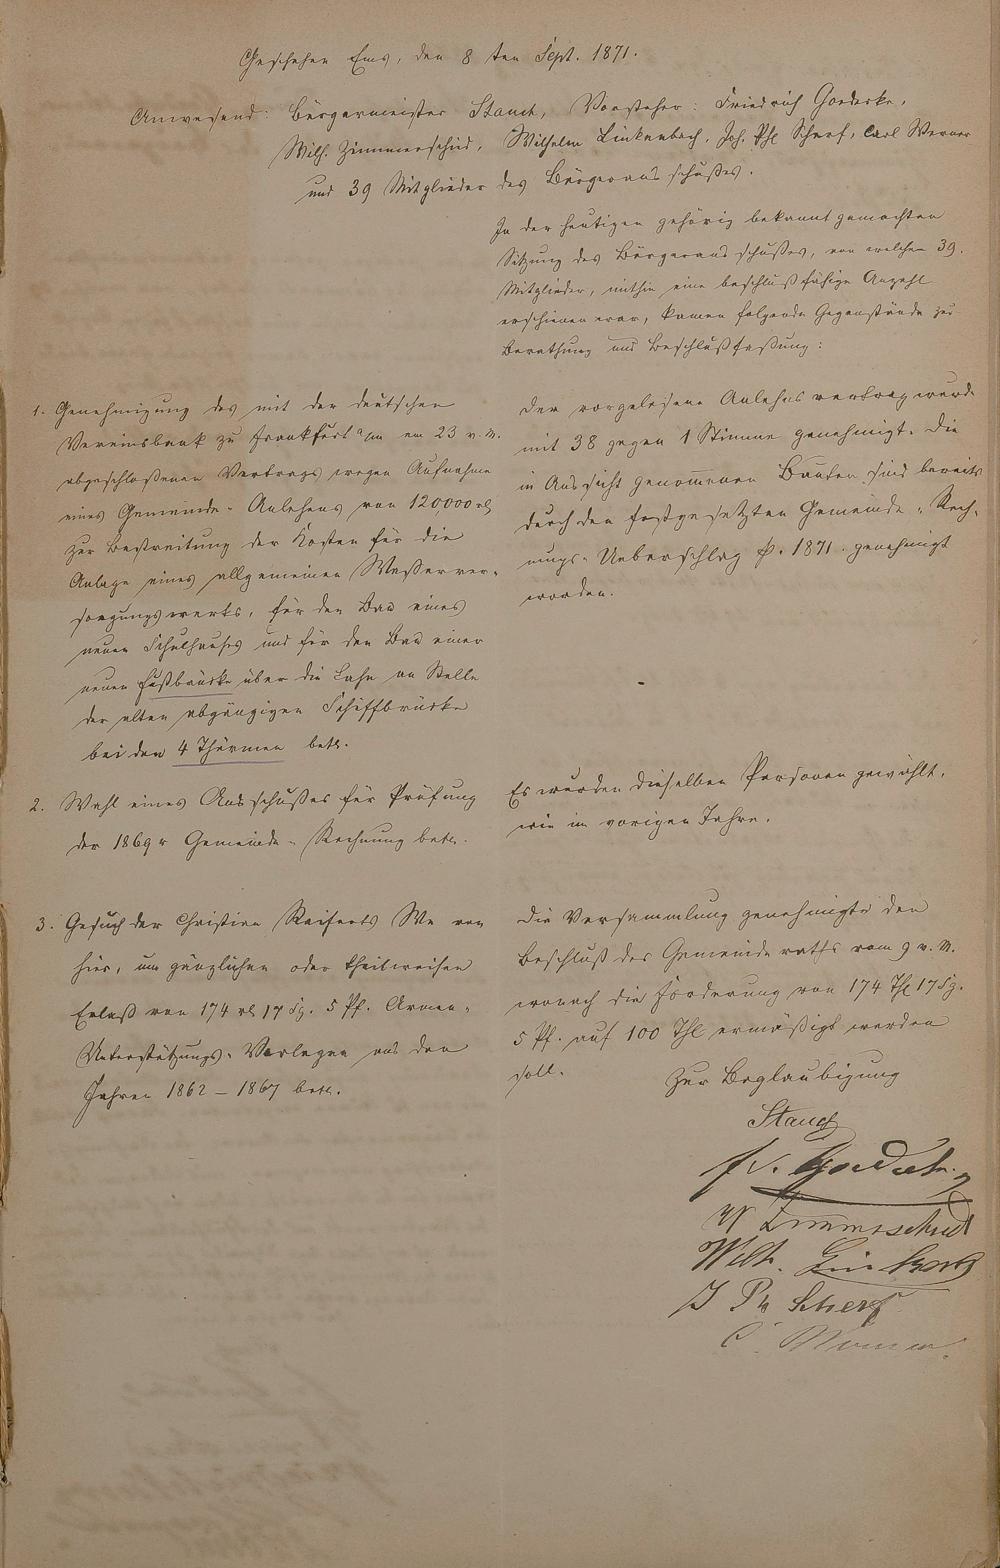 Geschehen Ems, den 8 ten Sept. 1871.
Anwesend: Bürgermeister Stauch, Vorsteher: Friedrich Goedecke,
Wilh. Zimmerschied, Wilhelm Linkenbach, Joh. Phl Scherf, Carl Werner
und 39 Mitglieder des Bürgerausschußes.
In der heutigen gehörig bekannt gemachten
Sitzung des Bürgerausschußes, von welchen 39.
Mitglieder, mithin eine beschlußfähige Anzahl
erschienen war, kamen folgende Gegenstände zur
Berathung und Beschlußfaßung:
1. Genehmigung des mit der deutschen
Vereinsbank zu Frankfurt a/m am 23 v. M.
abgeschloßenen Vertrags wegen Aufnahme
eines Gemeinde-Anlehens von 120000 rl
zur Bestreitung der Kosten für die
Anlage eines allgemeinen Waßerver-
sorgungswerks, für den Bau eines
neuen Schulhauses und für den Bau einer
neuen Fußbrücke über die Lahn an Stelle
der alten abgängigen Schiffbrücke
bei den 4 Thürmen betr.
Der vorgelesene Anlehnsvertrag wurde
mit 38 gegen 1 Stimme genehmigt. Die
in Aussicht genommenen Bauten sind bereits
durch den festgesetzten Gemeinde-Rech-
nungs-Ueberschlag p. 1871. genehmigt
worden.
2. Wahl eines Ausschußes für Prüfung
der 1869r Gemeinde-Rechnung betr.
Es wurden dieselben Personen gewählt,
wie im vorigen Jahre.
3. Gesuch der Christian Reiferts We von
hier, um gänzlichen oder theilweisen
Erlaß von 174 rl 17 Sg. 5 Pf. Armen-
Unterstützungs-Vorlagen aus den
Jahren 1862 – 1867 betr.
Die Versammlung genehmigte den
Beschluß des Gemeinderaths vom 9 v. M.
wonach die Forderung von 174 Thl 17 Sg.
5 Pf. auf 100 Thl ermäßigt werden
soll.
Zur Beglaubigung
Stauch
Fr. Goedecke
W Zimmerschied
Wilh. Linkenbach
J Ph Scherf
C. Werner.